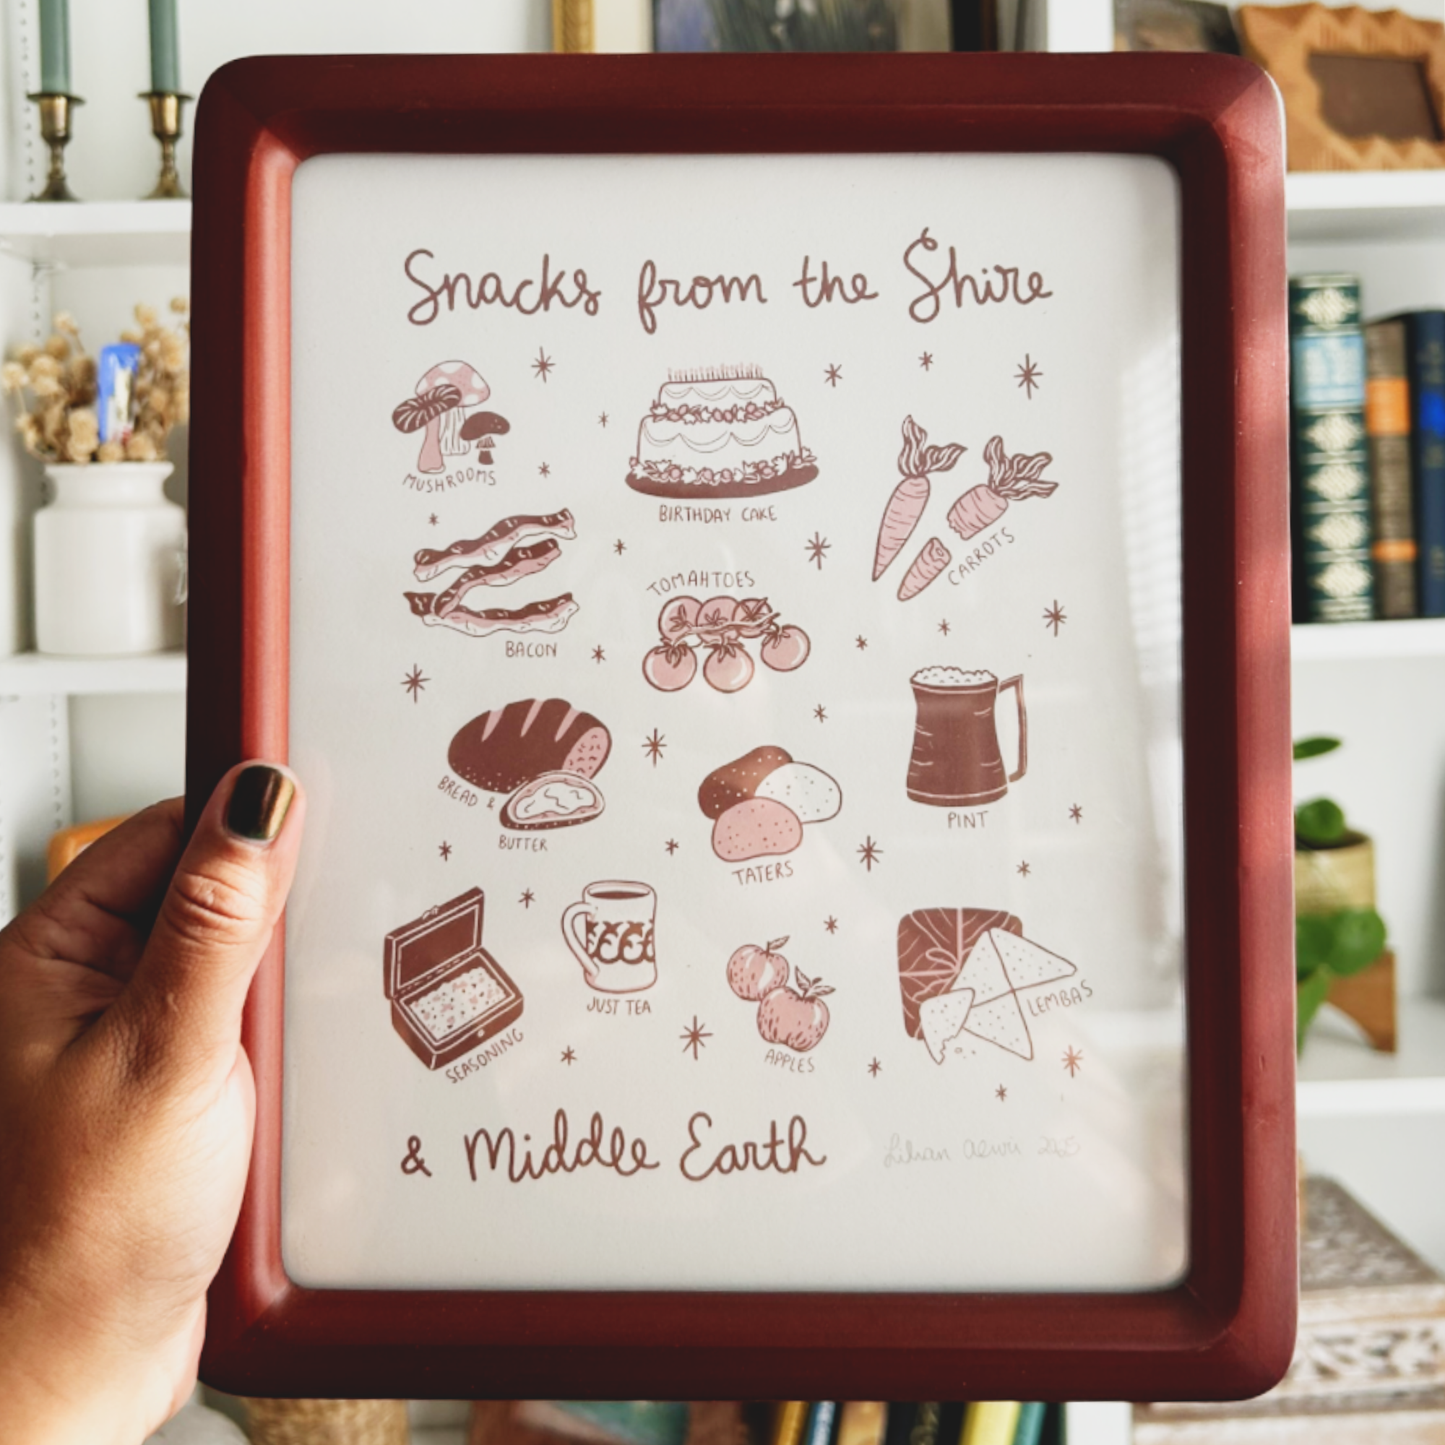 Snacks from the Shire
MUSHROOMS
BIRTHDAY CAKE
CARROTS
BACON
TOMAHTOES
BREAD &
BUTTER
TATERS
PINT
SEASONING
JUST TEA
APPLES
LEMBAS
& Middle Earth
Lilian